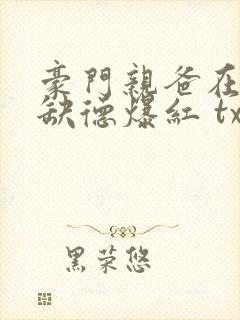 豪門親爸在
缺德爆紅 tx
黑荣悠